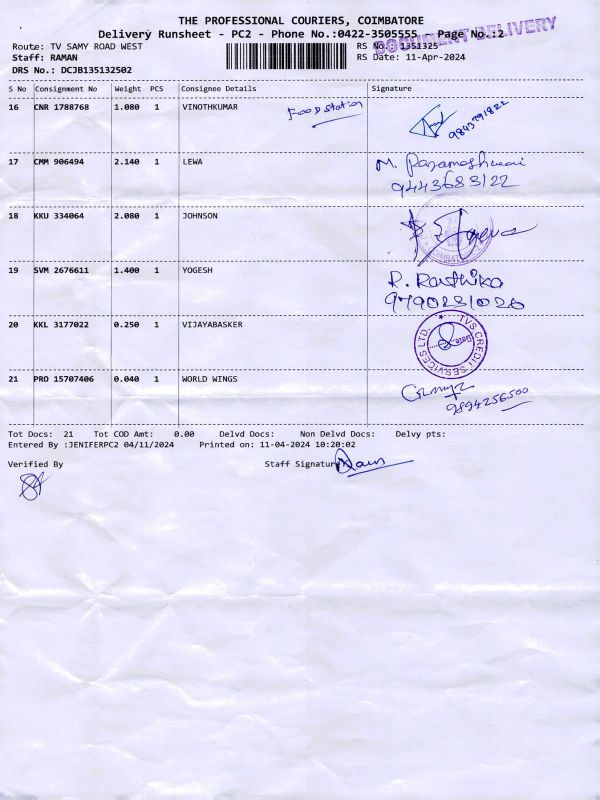 THE PROFESSIONAL COURIERS, COIMBATORE
Delivery Runsheet - PC2 - Phone No.:0422-3505555 - Page No.:2
DOCUMENT DELIVERY
Route: TV SAMY ROAD WEST RS No.: 1351325
Staff: RAMAN RS Date: 11-Apr-2024
DRS No.: DCJB135132502
S No Consignment No Weight PCS Consignee Details Signature
16 CNR 1788768 1.080 1 VINOTHKUMAR Food station
17 CMM 906494 2.140 1 LEWA M. Parameshwari
9443683122
18 KKU 334064 2.080 1 JOHNSON
19 SVM 2676611 1.400 1 YOGESH R. Rasthika
9790231020
20 KKL 3177022 0.250 1 VIJAYABASKER TVS CREDIT SERVICES LTD.
Date
21 PRO 15707406 0.040 1 WORLD WINGS
9894256500
Tot Docs: 21 Tot COD Amt: 0.00 Delvd Docs: Non Delvd Docs: Delvy pts:
Entered By :JENIFERPC2 04/11/2024 Printed on: 11-04-2024 10:20:02
Verified By Staff Signature